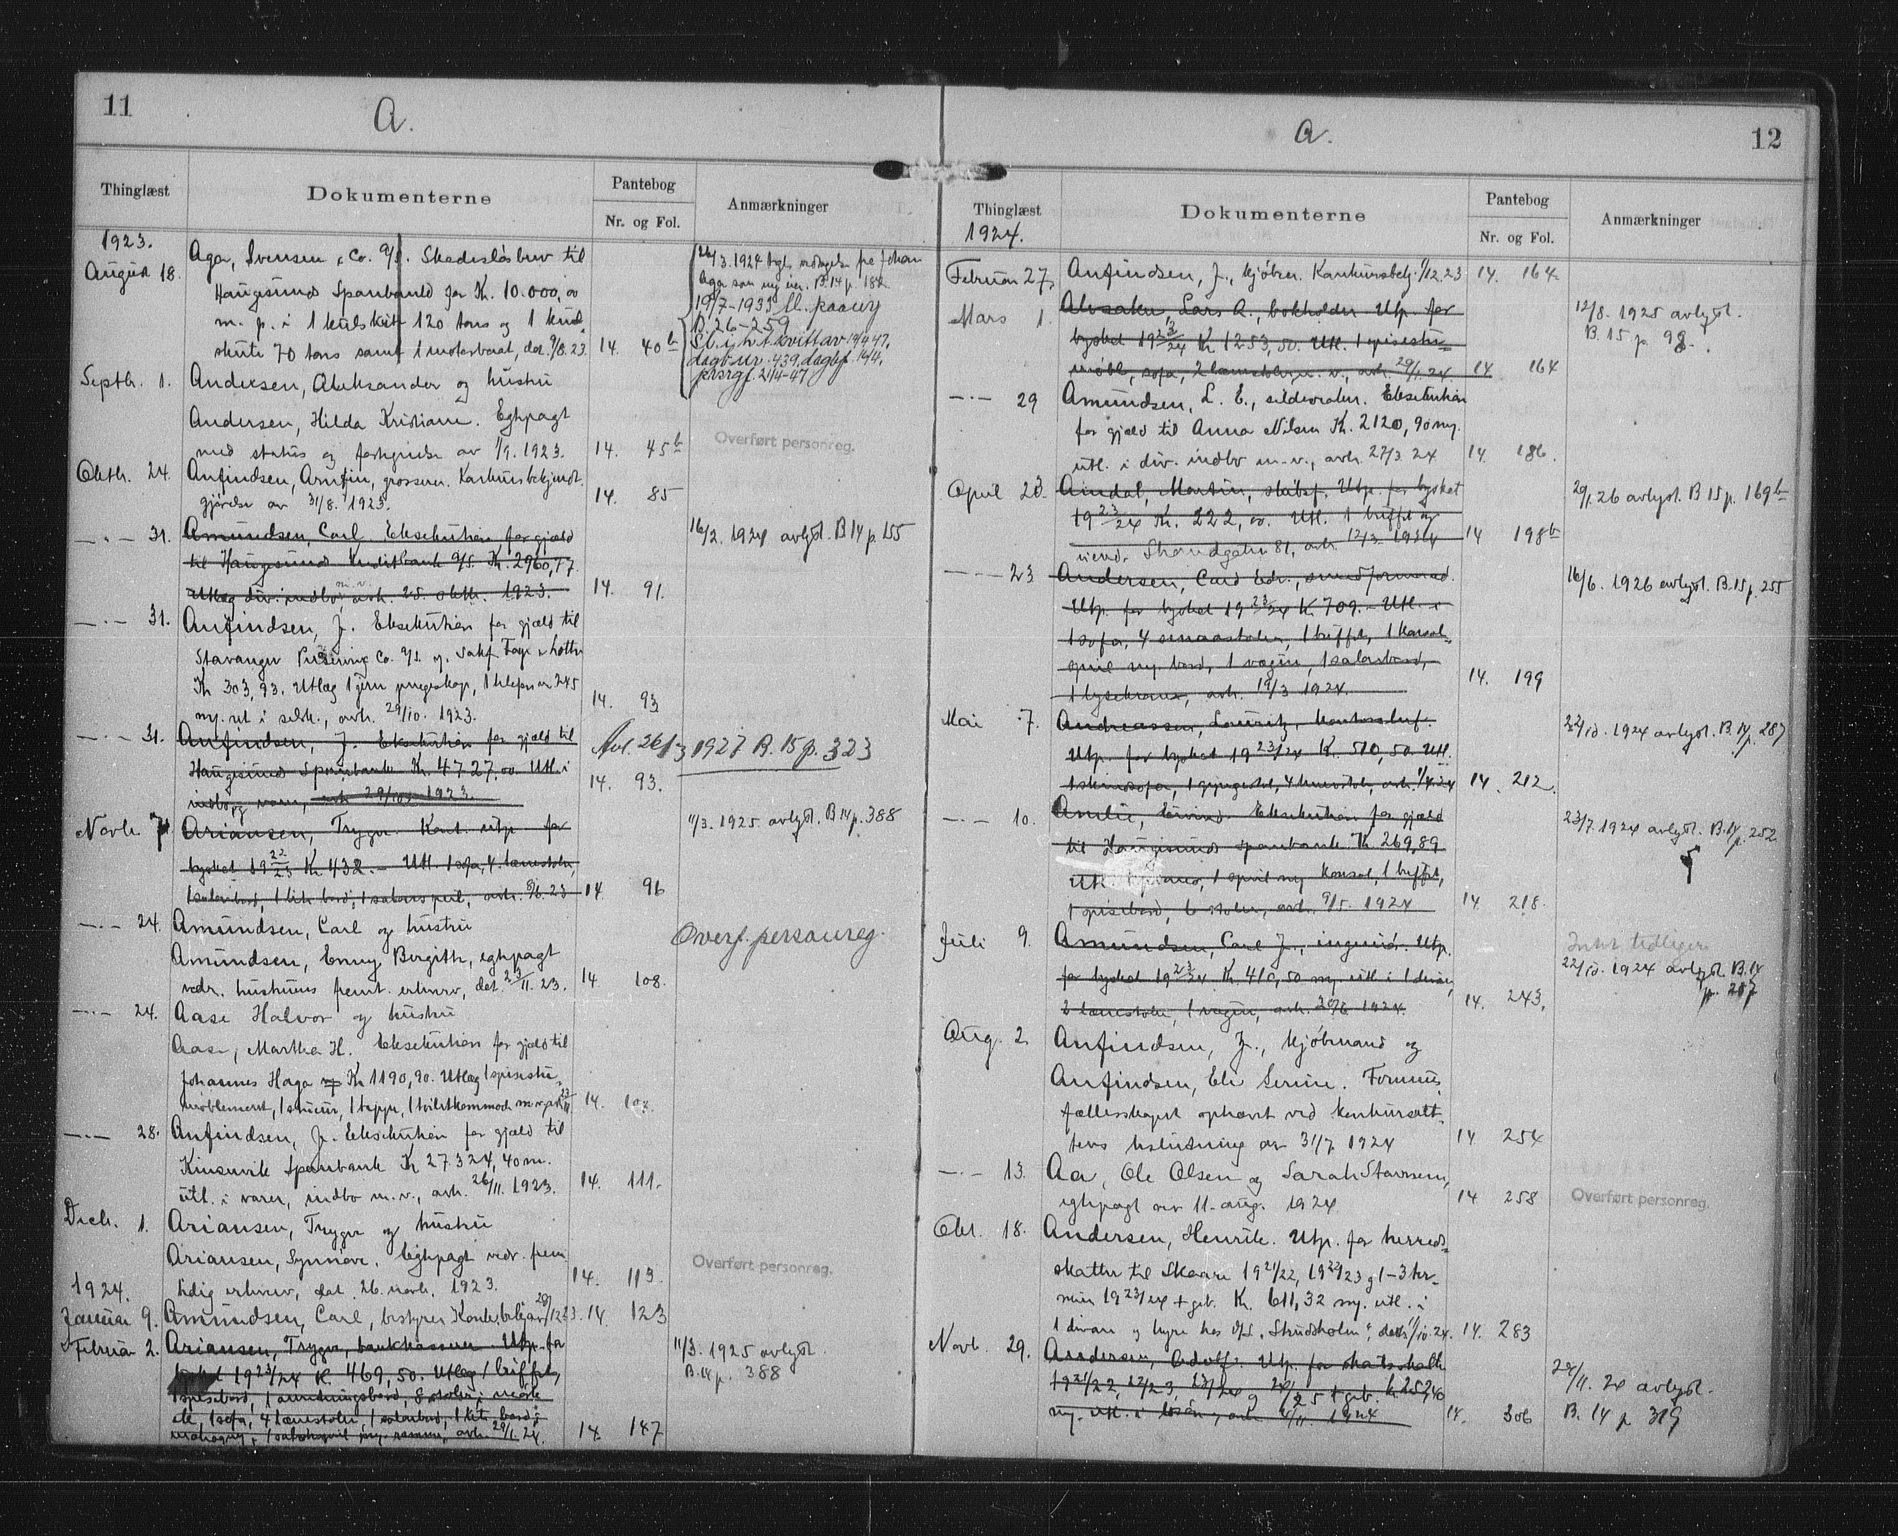 11
A.
Thinglæst
Dokumenterne
Pantebog
Nr. og Fol.
Anmærkninger
1923.
August 18.
Aga, Svensen & Co. a/s. Skadesløsbrev til
Haugesunds Sparebank for Kr. 10.000,00
m. p. i 1 kulskøit 120 tons og 1 kul
skute 70 tons samt 1 motorbaat, dat. 9/8.23
14. 40b
26/3.1924 vedtagelse fra Johan
Aga som ny eier. B.14 p. 182
19/7-1933
B.26-259
kvitt av 14/4 47.
dagb.nr. 439, dagbf. 16/4,
prsrgf. 21/4-47
Septb. 1.
Andersen, Aleksander og hustru
Andersen, Hilda Kristiane. Egtepagt
med status og fortegnelse av 1/9. 1923.
14. 45b
Overført personreg.
Oktb. 24.
Anfindsen, Arnfin, grosserer. Konkursbekjendt
gjørelse av 31/8. 1923.
14. 85
31.
Amundsen, Carl. Eksekution for gjæld
til Haugesunds Kreditbank a/s. Kr. 2960,77.
Utlæg div. indbo m.v., avh. 25. oktb. 1923.
14. 91.
16/2. 1924 avlyst. B 14 p. 155
31.
Anfindsen, J. Eksekution for gjæld til
Stavanger Co. a/s. og sakf. Fage &
Kr 303,93. Utlæg 1 jern pengeskap, 1 telefon nr 245
m. ret i selsk., avh. 29/10. 1923.
14. 93
31.
Anfindsen, J. Eksekution for gjæld til
Haugesunds Sparebank Kr. 4727,00 Utl. i
indbo og varer, avh. 29/10. 1923.
14. 93.
Avl. 26/3 1927 B. 15 p. 323
Novb. 7.
Ariansen, Trygve. Kont. utp. for
byskat 1922/23 Kr 432.- Utl. 1 sofa, 4 lænestoler,
1 salonbord, 1 lite bord, 1 salonspeil, avh. 23
14 96
11/3. 1925 avlyst. B 14 p. 388
24.
Amundsen, Carl og hustru
Amundsen, Enny Bergith, egtepagt
vedr. hustruens fremt. erhverv, dat. 23/11. 23.
14 108.
Overf. personreg.
24.
Aase Halvor og hustru
Aase, Martha H. Eksekution for gjæld til
Johannes Haga Kr 1190,90. Utlæg 1 spisestue
møblement, 1 1 teppe, 1 toiletkommode m.v., avh.
14. 108.
28.
Anfindsen, J. Eksekution for gjæld til
Kinservik Sparebank Kr 27.324,40 m.
utl. i varer, indbo m.v., avh. 26/11. 1923.
14. 111.
Decb. 1.
Ariansen, Trygve og hustru
Ariansen, Synnøve. Egtepagt vedr. frem
tidig erhverv, dat. 26. novb. 1923.
14. 113.
Overført personreg.
1924.
Januar 9.
Amundsen, Carl, bestyrer
14. 123
Februar 2.
Ariansen, Trygve, bankkasserer. Utp. for
byskat 1923/24 K. 469,50. Utlæg 1 buffet,
1 spisebord, 1 anretningsbord, 8 stoler,
1 sofa, 4 lænestoler, 1 salonbord, 1 lite bord,
mahogny, 1 salonspeil avh. 29/1. 24.
14. 147
11/3. 1925 avlyst.
B. 14 p. 388
12
A.
Thinglæst
Dokumenterne
Pantebog
Nr. og Fol.
Anmærkninger
1924.
Februar 27.
Anfindsen, J., kjøbm. Konkursbekj. 1/12.23
14. 164
Mars 1.
Alvsaker, Lars A., bokholder. Utp. for
byskat 1923/24 Kr 1253,50. Utl. 1 spisestue
møbl., sofa, 2 lænestoler m. v., avh. 29/1. 24
14 164
12/8. 1925 avlyst.
B. 15 p. 98.
29
Amundsen, L. E., sildevraker. Eksekution
for gjæld til Anna Nilsen Kr. 2120,90 m.
utl. i div. indbo m.v., avh. 27/3. 24
14. 186.
April 23.
Aindal, Martin, skibsf. Utp. for byskat
1923/24 Kr. 222,00. Utl. 1 buffet og
eiend. Strandgaten 81, avh. 12/3. 1924
14 198b
29/1.26 avlyst B 15 p. 169b
23
Andersen, Card Edv., smedformand.
Utp. for byskat 1923/24 K 709.- Utl. i
1 sofa, 4 smaastoler, 1 buffet, 1 konsol-
speil m. bord, 1 vogin, 1 salonbord,
1 lysekrone, avh. 19/3 1924.
14. 199
16/6. 1926 avlyst. B. 15 p. 255
Mai 7.
Andreassen, Lauritz, kontorchef.
Utp. for byskat 1923/24 K. 510,50. Utl.
1 skindsofa, 1 gyngestol, avh. 1/4 24
14 212.
22/10. 1924 avlyst. B. 14 p. 287
10.
Amlie, Eivind. Eksekution for gjæld
til Haugesunds sparebank Kr 269,89
Utl. 1 speil m. konsol, 1 buffet,
1 spisebord, 6 stoler, avh. 9/5. 1924
14. 218.
23/7. 1924 avlyst. B. 14 p. 252
Juli 9.
Amundsen, Carl J., ingeniør. Utp.
for byskat 1923/24. K. 410,50 m. utl. i 1 divan,
2 lænestoler, 1 vogin, avh. 20/6 1924
14. 243.
Intet tidligere
22/10. 1924 avlyst. B. 14
p. 287
Aug. 2.
Anfindsen, J., kjøbmand og
Anfindsen, Eli Serine. Formues
fællesskapet ophævt ved konkursret
tens beslutning av 31/7. 1924
14 254
13.
Aa, Ole Olsen og Sarah Stavnem,
egtepagt av 11. aug. 1924
14 258
Overført personreg.
Okt. 18.
Andersen, Henrik. Utp. for herreds-
skatter til Skaare 1921/22, 1922/23 og 1-3 ter-
min 1923/24 + geb. Kr. 611,32 m. utl. i
1 divan og hyre hos D/S. "Skudsholm", datb. 1/10. 24.
14. 283
Novb. 29.
Andersen, Adolf. Utp. for skatteskatt
1921/22, 22/23, 23/24 og 24/25 + geb. kr 252,40
m. utl. i avh. 4/11. 1924
14. 306
29/11. 24 avlyst.
B. 14 p 319